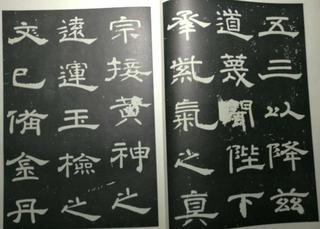 五三以降茲
道蔑聞陛下
承紫氣之真
宗接黃神之
遠運玉檢之
文已備金丹